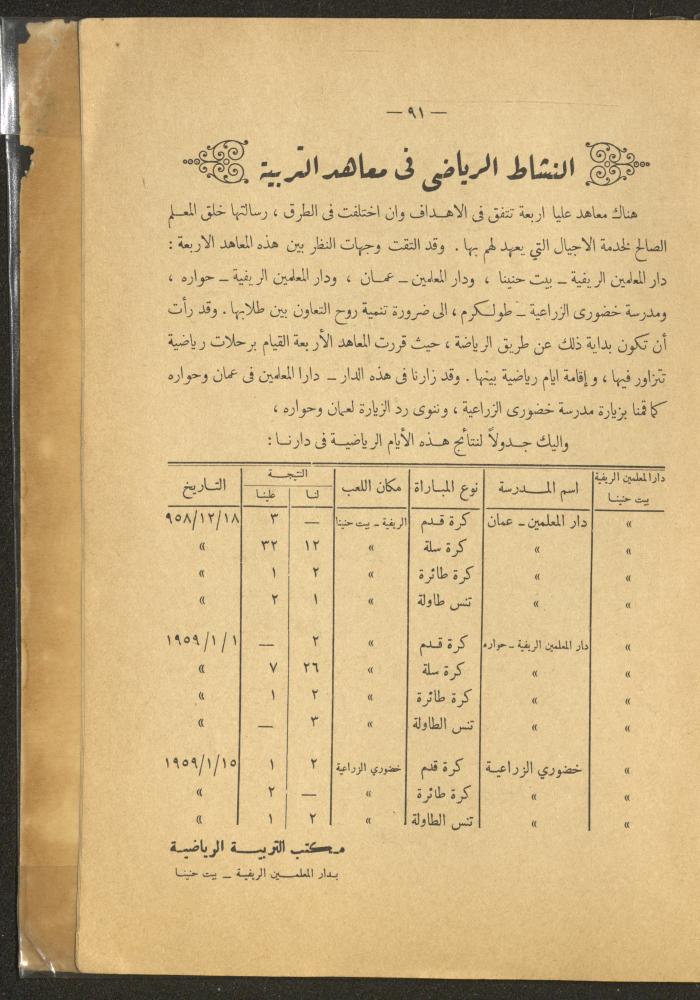 — ٩١ —
النشاط الرياضى فى معاهد التربية
هناك معاهد عليا اربعة تتفق فى الاهداف وان اختلفت فى الطرق ، رسالتها خلق المعلم
الصالح لخدمة الاجيال التي يعهد لهم بها . وقد التقت وجهات النظر بين هذه المعاهد الاربعة :
دار المعلمين الريفية – بيت حنينا ، ودار المعلمين – عمان ، ودار المعلمين الريفية – حواره ،
ومدرسة خضورى الزراعية – طولكرم ، الى ضرورة تنمية روح التعاون بين طلابها . وقد رأت
أن تكون بداية ذلك عن طريق الرياضة ، حيث قررت المعاهد الأربعة القيام برحلات رياضية
تتزاور فيها ، و إقامة ايام رياضية بينها . وقد زارنا فى هذه الدار – دارا المعلمين فى عمان وحواره
كما قمنا بزيارة مدرسة خضورى الزراعية ، وننوى رد الزيارة لعمان وحواره ،
واليك جدولاً لنتائج هذه الأيام الرياضية فى دارنا :
دار المعلمين الريفية بيت حنينا | اسم المدرسة | نوع المباراة | مكان اللعب | النتيجة لنا | علينا | التاريخ
» | دار المعلمين – عمان | كرة قدم | الريفية – بيت حنينا | — | ٣ | ٩٥٨/١٢/١٨
» | » | كرة سلة | » | ١٢ | ٣٢ | »
» | » | كرة طائرة | » | ٢ | ١ | »
» | » | تنس طاولة | » | ١ | ٢ | »
» | دار المعلمين الريفية – حواره | كرة قدم | » | ٢ | — | ١٩٥٩/١/١
» | » | كرة سلة | » | ٢٦ | ٧ | »
» | » | كرة طائرة | » | ٢ | ١ | »
» | » | تنس الطاولة | » | ٣ | — | »
» | خضوري الزراعية | كرة قدم | خضوري الزراعية | ٢ | ١ | ١٩٥٩/١/١٥
» | » | كرة طائرة | » | — | ٢ | »
» | » | تنس الطاولة | » | ٢ | ١ | »
مكتب التربية الرياضية
بدار المعلمين الريفية – بيت حنينا